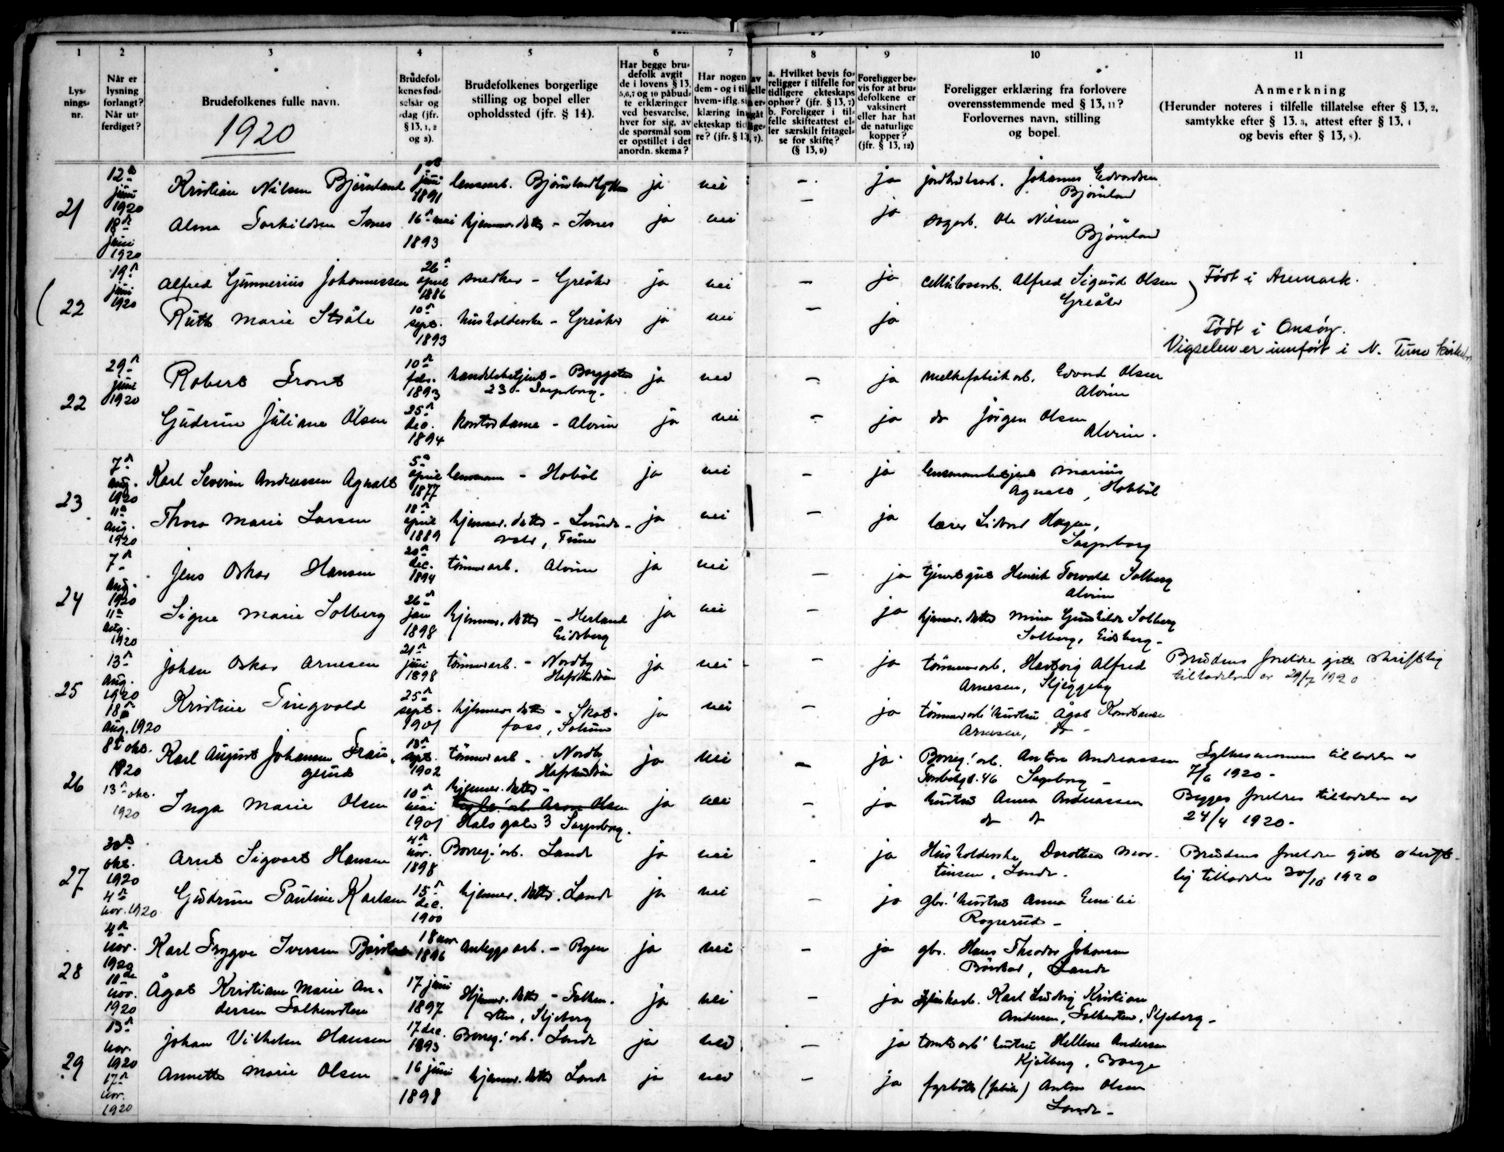 1 2 3 4 5 6 7 8 9 10 11
Lysnings-nr.
Når er lysning forlangt? Når utferdiget?
Brudefolkenes fulle navn.
1920
Brudefolkenes fødselsår og -dag (jfr. § 13, 1, 2 og 3).
Brudefolkenes borgerlige stilling og bopel eller opholdssted (jfr. § 14).
Har begge brudefolk avgit de i lovens § 13, 5, 6, 7 og 10 påbudte erklæringer ved besvarelse, hver for sig, av de spørsmål som er opstillet i det anordn. skema?
a. Hvilket bevis foreligger i tilfelle for tidligere ekteskaps ophør? (jfr. § 13, 7)
b. Foreligger i tilfelle skifteattest eller særskilt fritagelse for skifte? (§ 13, 9)
Foreligger bevis for at brudefolkene er vaksinert eller har hat de naturlige kopper? (jfr. § 13, 12)
Foreligger erklæring fra forlovere overensstemmende med § 13, 11? Forlovernes navn, stilling og bopel.
Anmerkning
(Herunder noteres i tilfelle tillatelse efter § 13, 2, samtykke efter § 13, 3, attest efter § 13, 4 og bevis efter § 13, 8).
21 12te juni 1920 Kristian Nilsen Bjørnland 1ste juni 1891 ja nei - ja Johannes Edvardsen Bjørnland
18de juni 1920 Alma Torkildsen Isnes 16de mai 1893 hjemmev. datter - Isnes ja nei - ja Ole Nilsen Bjørnland
22 19de juni 1920 Alfred Gunnerius Johannessen 26de april 1886 snedker - Greåker ja nei - ja cellulosearb. Alfred Sigurd Olsen Greåker Født i Aremark.
Ruth Marie Stråle 10de sept. 1893 husholderske - Greåker ja nei - ja Født i Onsøy.
Vigselen er innført i N. Tune
22 29de juni 1920 Robert Front 10de febr. 1893 23 - Sarpsborg. ja nei - ja Edvard Olsen Alvim
Gudrun Juliane Olsen 25de dec. 1894 kontordame - Alvim ja nei - ja do Jørgen Olsen Alvim.
23 7de aug. 1920 Karl Severin Andreassen Agnalt 5te april 1877 lensmann - Hobøl ja nei - ja Marius Agnalt, Hobøl
11te aug. 1920 Thora Marie Larsen 18de april 1889 hjemmev. datter - Tune ja nei - ja lærer Hagen, Sarpsborg
24 7de aug. 1920 Jens Oskar Hansen 20de dec. 1894 tømmerarb. Alvim ja nei - ja Henrik Torvald Solberg Alvim
11te aug. 1920 Signe Marie Solberg 26de jan 1898 hjemmev. datter - Herland Eidsberg ja nei - ja hjemmev. datter Solberg, Eidsberg -
25 13de aug. 1920 Johan Oskar Arnesen 21de juni 1898 tømmerarb. - Nordby Hafslundsøen ja nei - ja tømmerarb. Alfred Arnesen, Skjeggeby Brudens foreldre gitt skriftlig tilladelse av 29/7 1920
18de aug. 1920 Kristine Tingvold 25de sept. 1901 hjemmev. datter - Skotfoss, Solum ja nei - ja tømmerarb' hustru Ågot Konstanse Arnesen, do -
26 8de okt. 1920 Karl August Johansen 18de sept. 1902 tømmerarb - Nordby Hafslundsøen ja nei - ja Borreg' arb. Anton Andreassen 46 Sarpsborg - Fylkesmannens tilladelse av 7/6 1920 -
13de okt. 1920 Inga Marie Olsen 10de mai 1901 hjemmev. datter - 3 Sarpsborg. ja nei - ja hustru Anna Andreassen do do Begges foreldres tilladelse av 24/4 1920 -
27 30te okt. 1920 Arnt Sigvart Hansen 4de nov. 1898 Borreg' arb. Lande ja nei - ja Husholderske Dorothea Mortinsen, Lande. Brudens foreldre gitt skriftlig tilladelse 20/10 1920
4de nov. 1920 Gudrun Pauline Karlsen 15de dec. 1900 hjemmev. datter Lande ja nei - ja gbr.' hustru Anna Emilie Rogserud -
28 4de nov. 1920 Karl Trygve Iversen 18 nov. 1896 Anleggsarb. - Rygen ja nei - ja gbr. Hans Theodor Johansen Lande
10de nov. 1920 Ågot Kristiane Marie Andersen Falkensten 17 juni 1897 Hjemmev. datter - Falkensten, Skjeberg ja nei - ja Karl Ludvig Kristian Andersen, Falkensten, Skjeberg -
29 13de nov. 1920 Johan Vilhelm Hansen 17 dec. 1893 Borreg' arb. Lande ja nei - ja hustru Helene Andersen Kjølberg, Borge
17de nov. 1920 Annette Marie Olsen 16 juni 1898 hjemmev. datter Lande ja nei - ja fyrbøter (fabrik) Anton Olsen Lande -